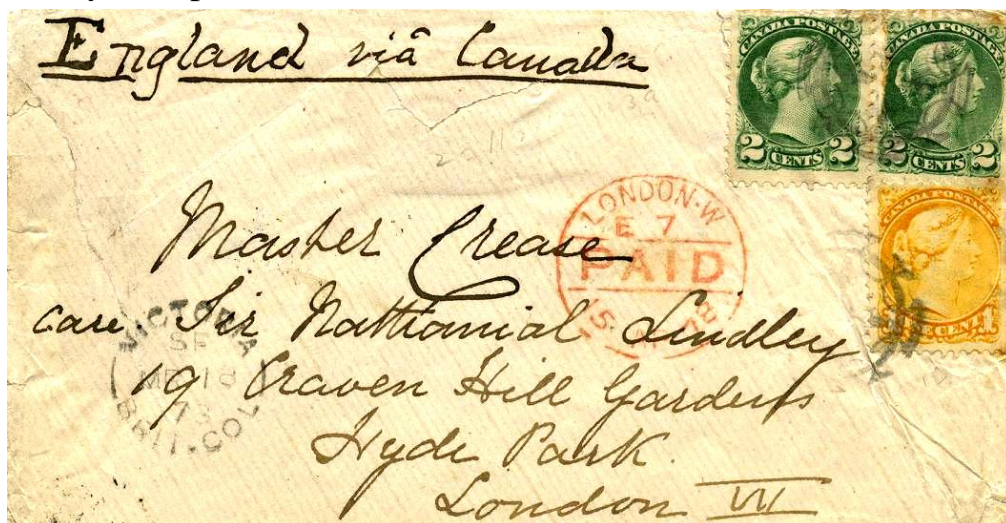 England viâ Canada
CANADA POSTAGE
2 CENTS 2
CANADA POSTAGE
2 CENTS 2
CANADA POSTAGE
CENT 1
LONDON·W
E 7
PAID
Master Crease
care Sir Nathanial Lindley
19 Craven Hill Gardens
Hyde Park.
London W
VICTORIA
18
BRIT·COL